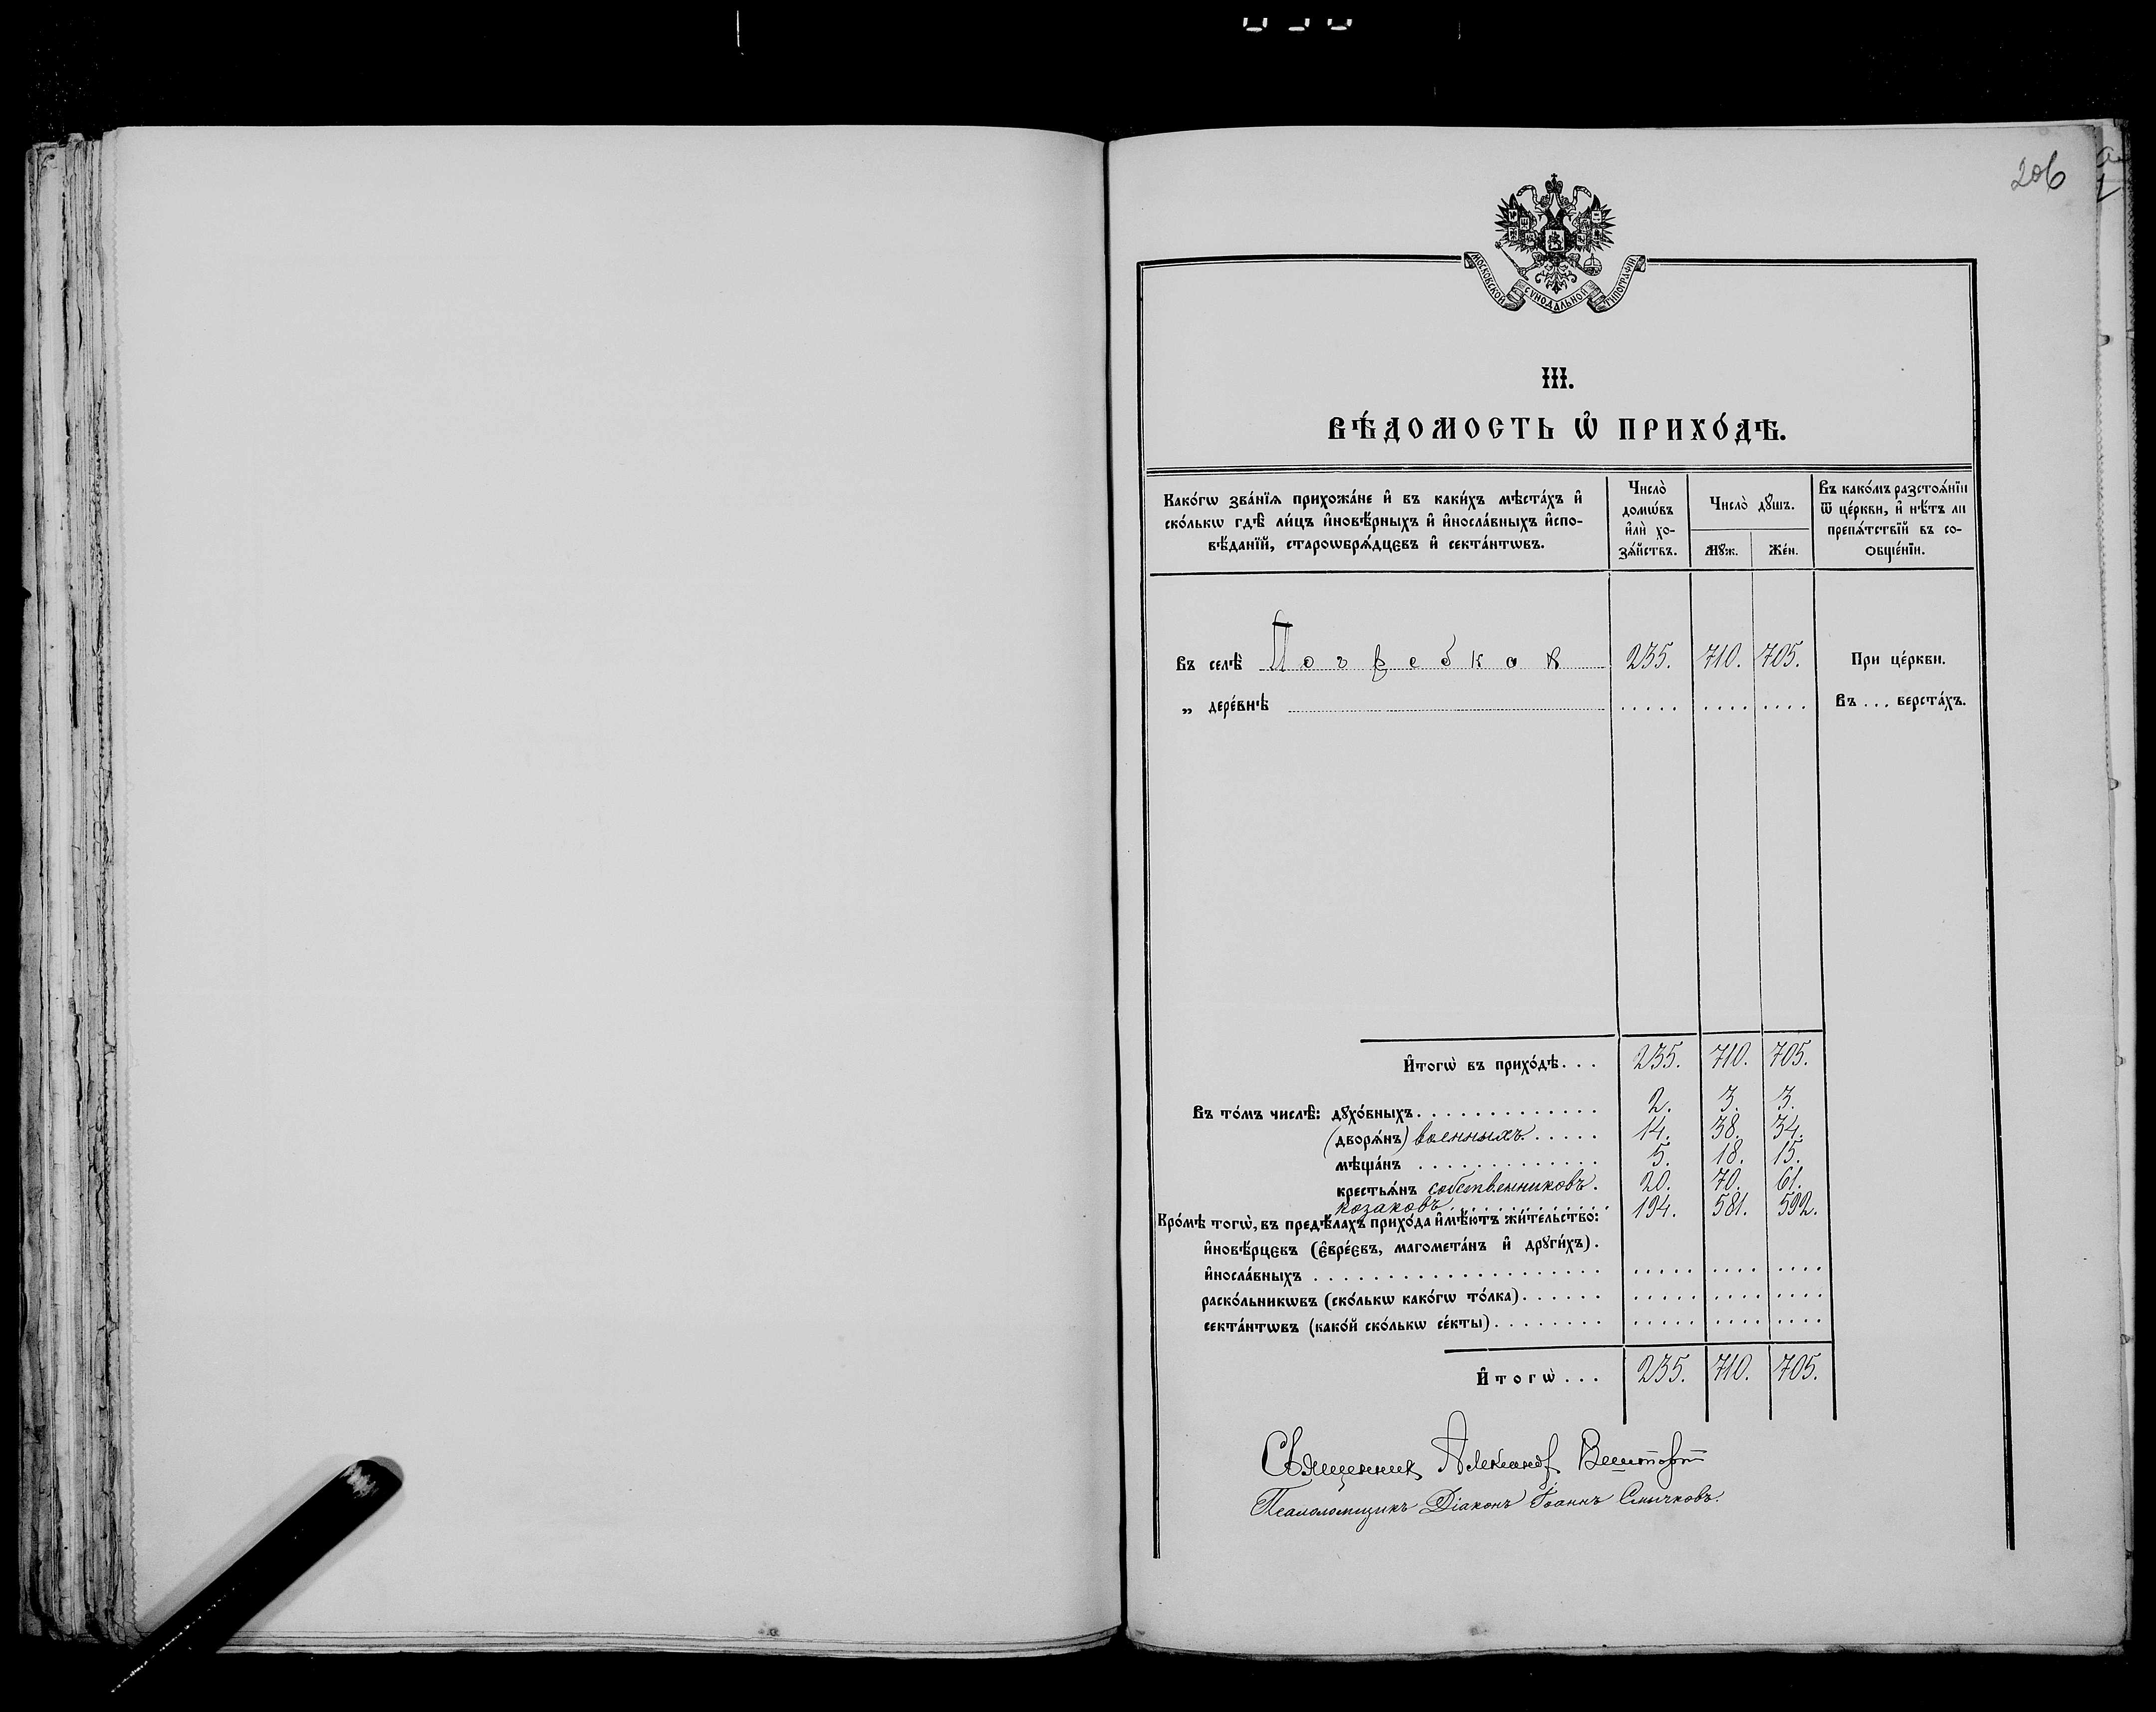 206
МОСКОВСКОЙ СѴНОДАЛЬНОЙ ТИПОГРАФІИ
III.
ВѢ́ДОМОСТЬ Ѡ҆ ПРИХО́ДѢ.
Како́гѡ зва́нїѧ прихожа́не и҆ въ каки́хъ мѣста́хъ и҆
ско́лькѡ гдѣ̀ ли́цъ и҆новѣ́рныхъ и҆ и҆носла́вныхъ и҆спо-
вѣ́данїй, староѡбрѧ́дцєвъ и҆ секта́нтѡвъ.
Число̀
домѡ́въ
и҆лѝ хо-
зѧ́йствъ.
Число̀ дꙋ́шъ.
Мꙋ́ж.
Же́н.
Въ како́мъ разстоѧ́нїи
ѿ це́ркви, и҆ нѣ́тъ ли
препѧ́тствїй въ со-
ѻбще́нїи.
Въ селѣ̀ Погребкахъ 235. 710. 705. При це́ркви.
„ дере́внѣ ..... .... .... Въ ... верста́хъ.
И҆тогѡ̀ въ прихо́дѣ... 235. 710. 705.
Въ то́мъ числѣ̀: дꙋхо́вныхъ. 2. 3. 3.
(дворѧ́нъ) военныхъ. 14. 38. 34.
мѣща́нъ 5. 18. 15.
крестьѧ́нъ собственниковъ. 20. 70. 61.
козаковъ. 194. 581. 592.
Кро́мѣ тогѡ̀, въ предѣ́лахъ прихо́да и҆мѣ́ютъ жи́тельство:
и҆новѣ́рцєвъ (є҆вре́євъ, магомета́нъ и҆ дрꙋги́хъ).
и҆носла́вныхъ
раско́льникѡвъ (ско́лькѡ како́гѡ то́лка)
секта́нтѡвъ (како́й ско́лькѡ се́кты)
И҆тогѡ̀... 235. 710. 705.
Священник Александр
Псаломщикъ Діаконъ Іоаннъ Смычковъ.